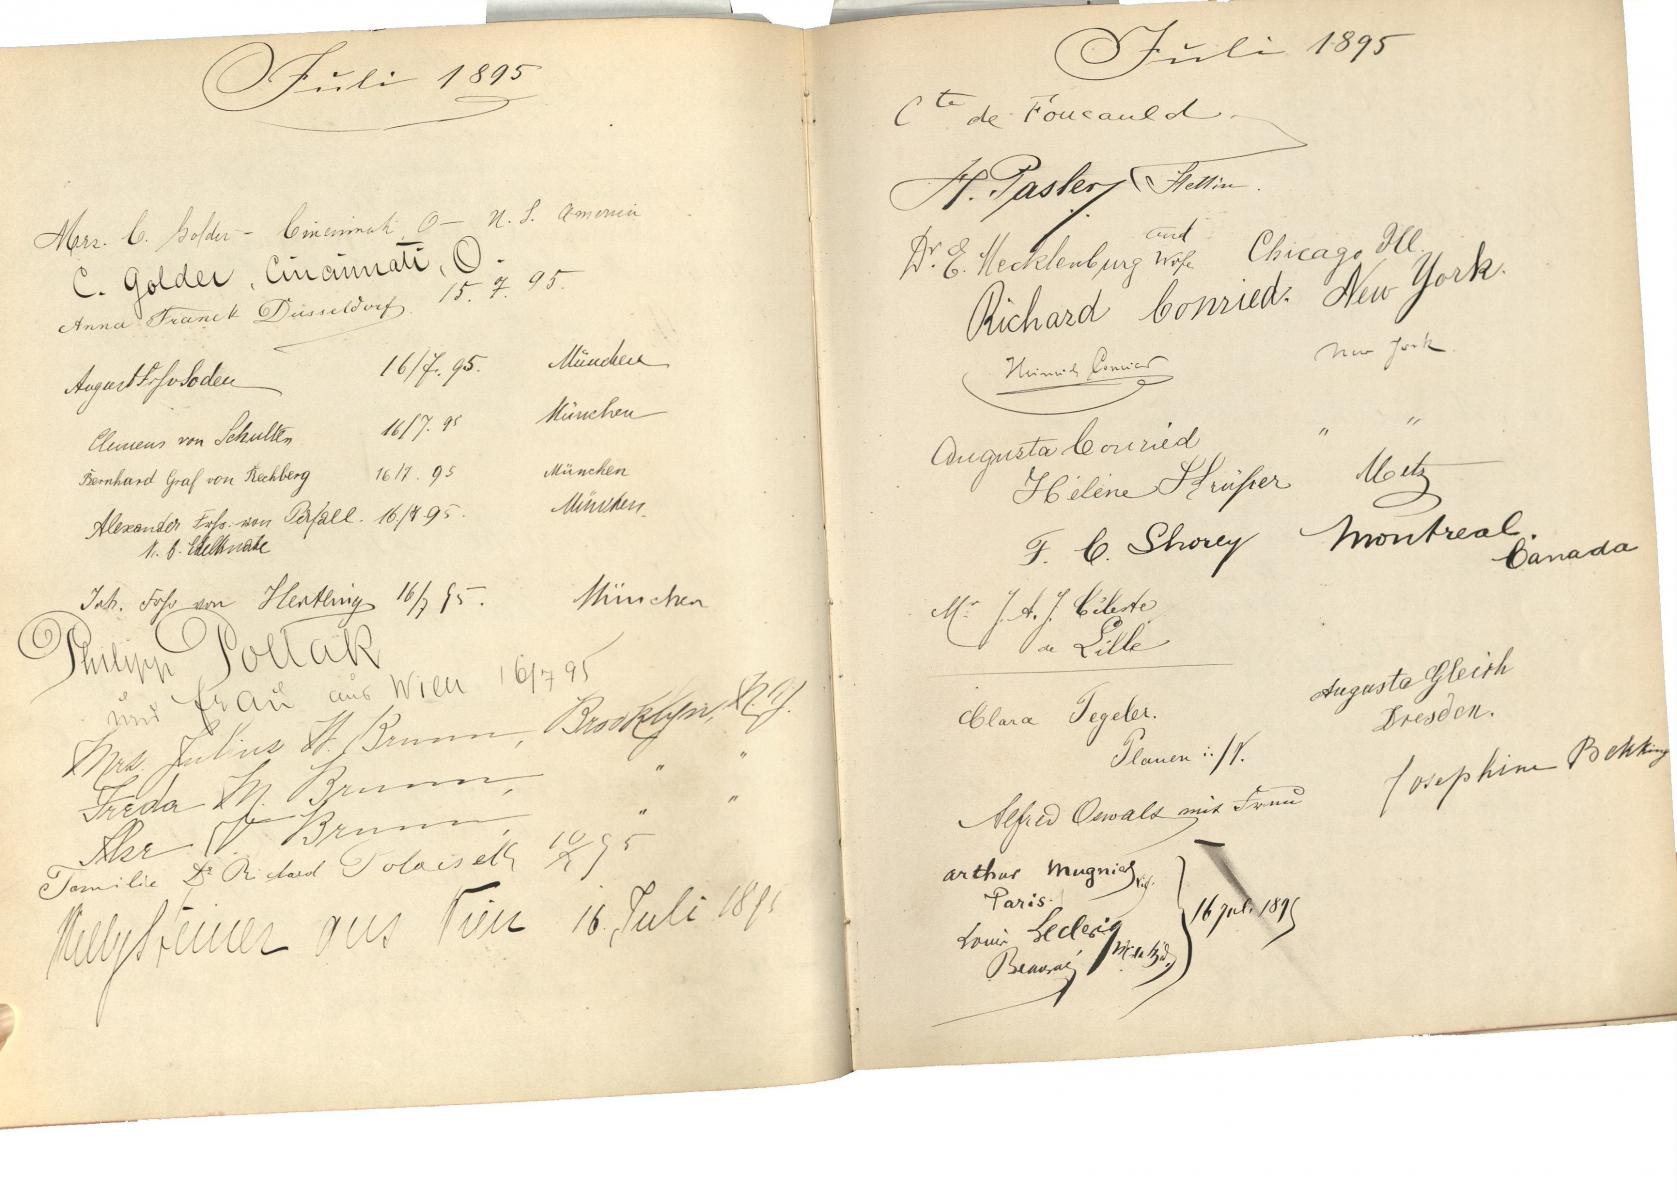 Juli 1895
Mrs. C. Golder - Cincinnati, O - N. S. America
C. Golder, Cincinnati, O.
Anna Franck Düsseldorf. 15. 7. 95.
August Frhr v Soden 16/7. 95. München
Clemens von Schulten 16/7. 95 München
Bernhard Graf von Rechberg 16/7. 95 München
Alexander Frhr. von Perfall. 16/7 95. München.
K. b. Edelknabe
Joh. Frhr von Hertling 16/7 95. München
Philipp Pollak
und Frau aus Wien 16/7 95
Mrs. Julius H. Brunn, Brooklyn, N.Y.
Freda M. Brunn, " "
V. Brunn, " "
Familie Dr Richard 95
Steiner aus Wien 16. Juli 1895
Juli 1895
Cte de Foucauld
H. Pasley Stettin.
Dr. E. Mecklenburg and Wife Chicago Ill.
Richard Conried. New York.
Heinrich Conried New York
Augusta Conried " "
Hélène Krüper Metz
F. C. Shorey Montreal.
Canada
Mr J. A. J. Céleste
de Lille
Clara Tegeler.
Plauen i/V.
Augusta Gleich
Dresden.
Josephine Bekking
Alfred Oswald mit Frau
arthur Mugnier
Paris.
Louis Leclerig
Beauvais
16 juil. 1895